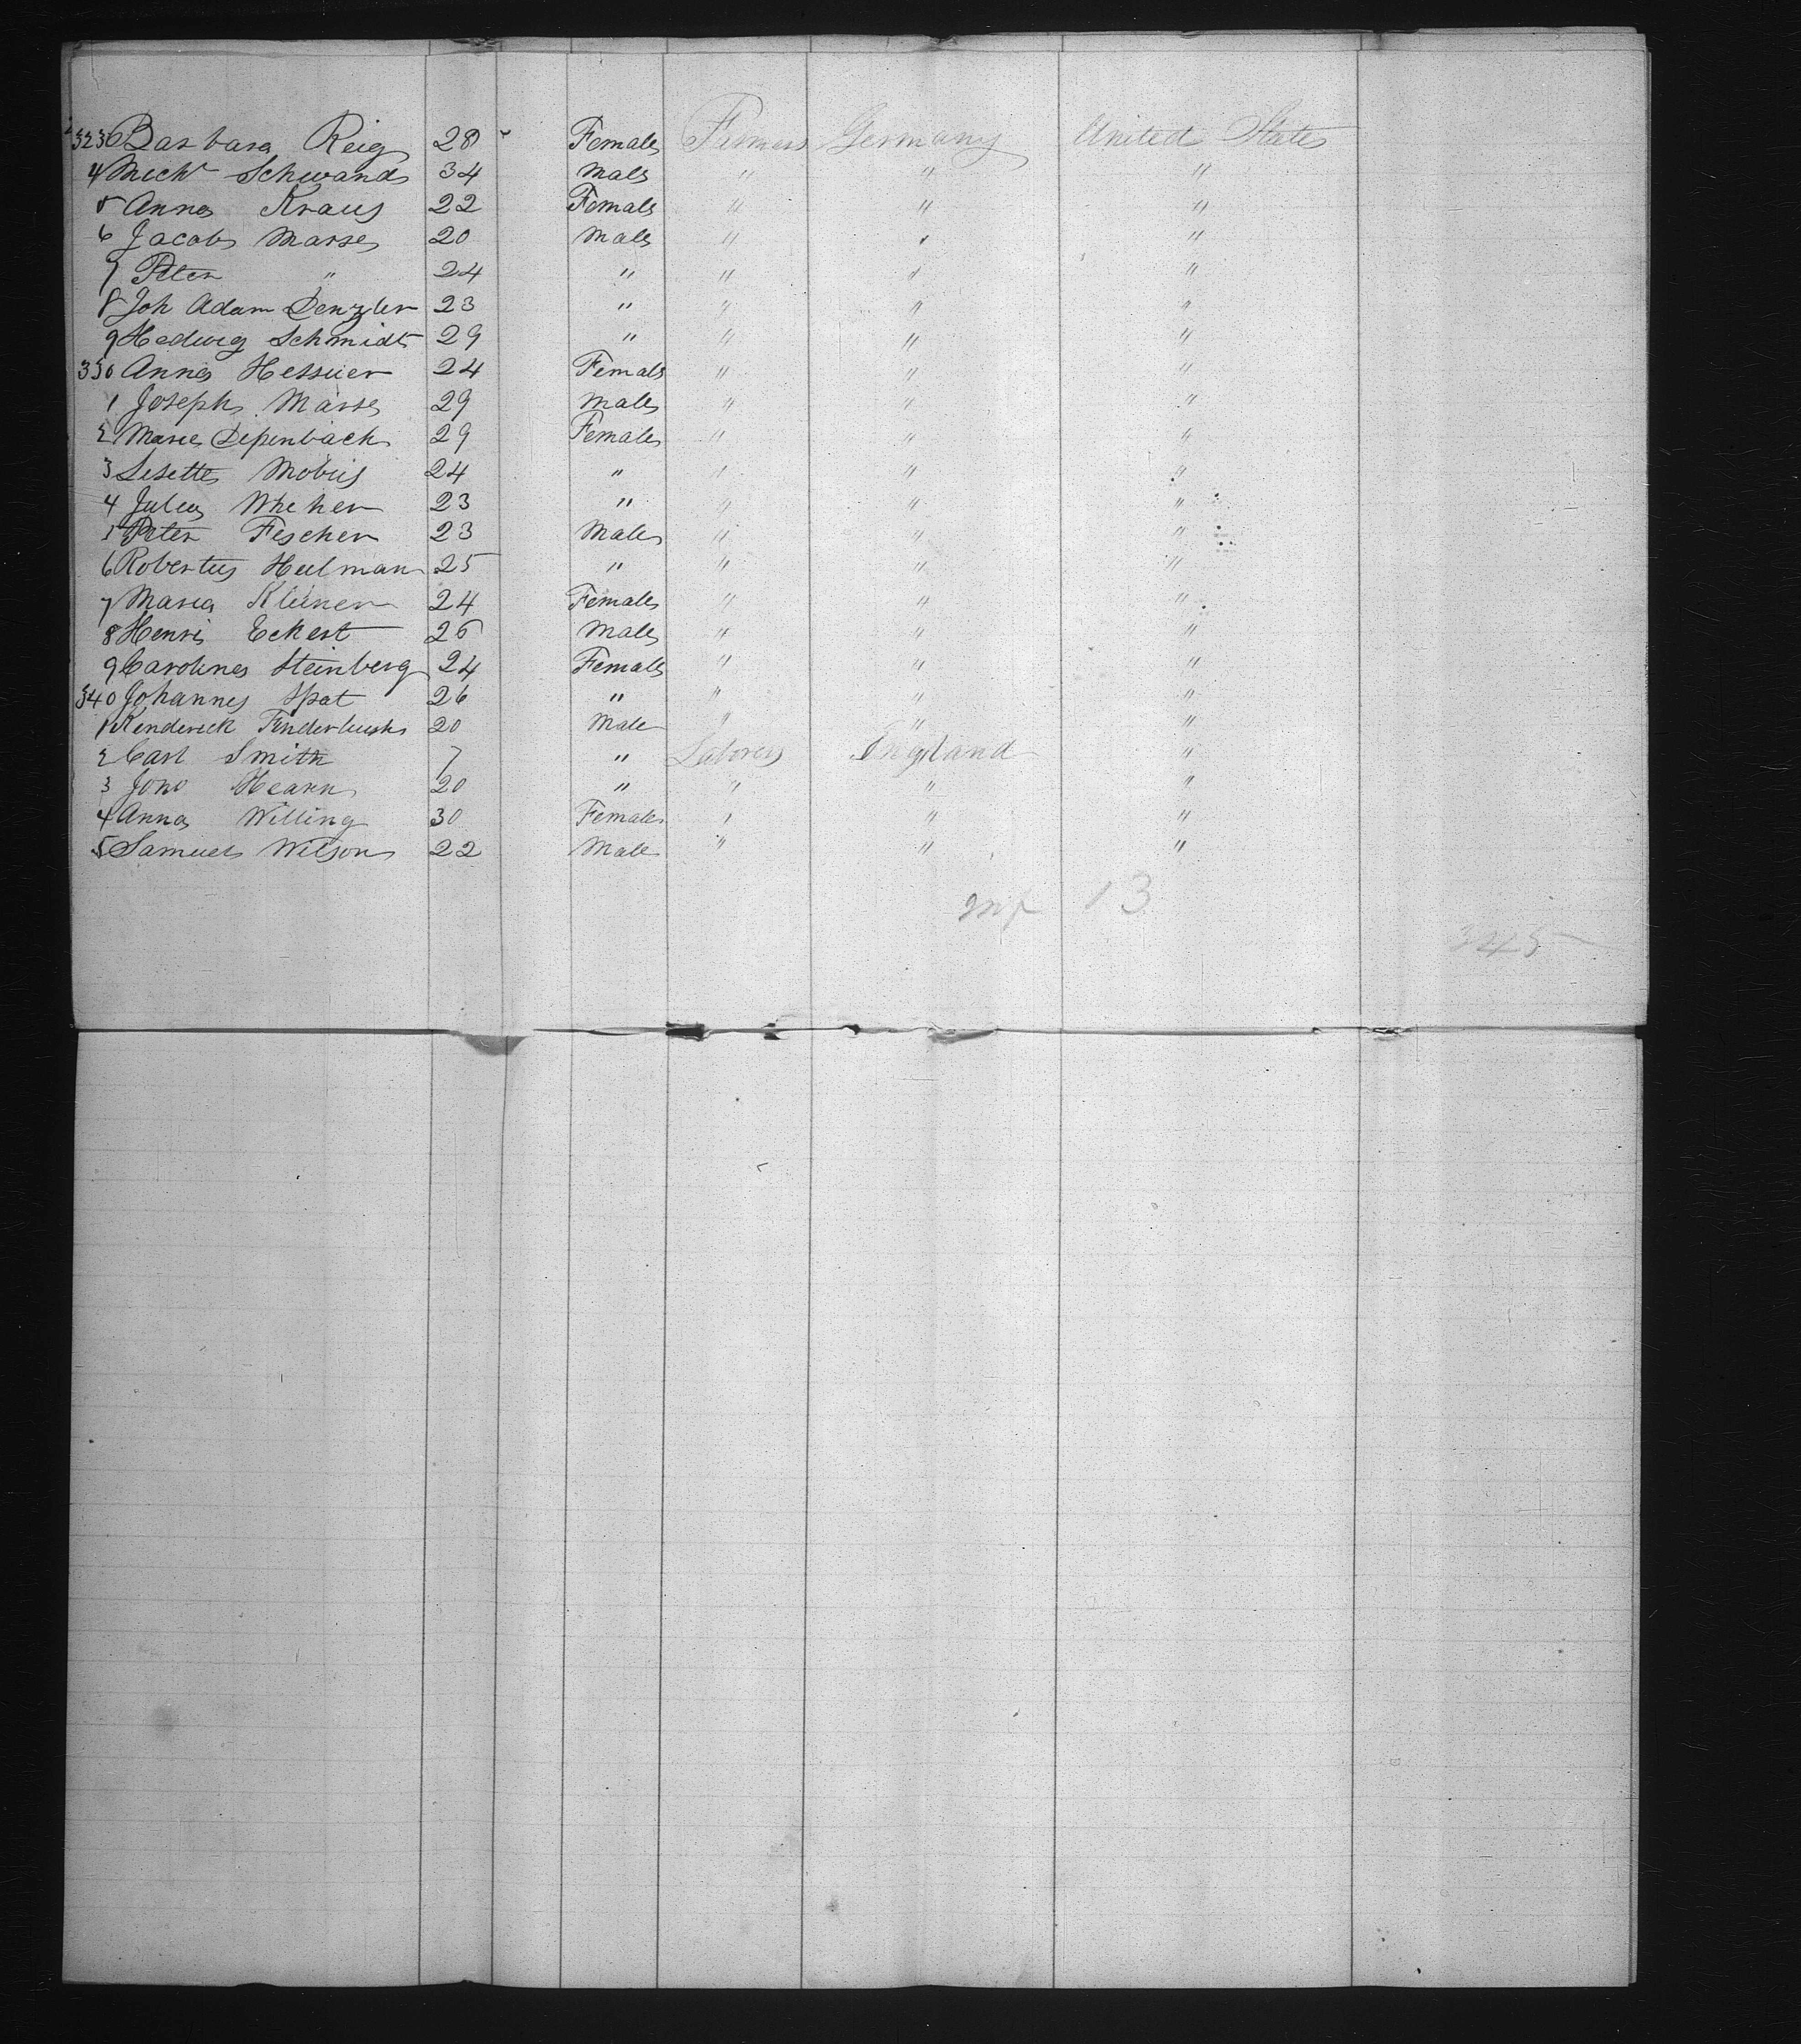 323 Barbara Reig 28 Female Farmers Germany United States
4 Mich Schwand 34 Male " " "
5 Anna Kraus 22 Female " " "
6 Jacob Marse 20 Male " " "
7 Peter " 24 " " " "
8 Joh Adam Denzler 23 " " " "
9 Hedwig Schmidt 29 " " " "
330 Anna Hessuer 24 Female " " "
1 Joseph Marse 29 Male " " "
2 Marie Depenbach 29 Female " " "
3 Lisette Mobus 24 " " " "
4 Julia 23 " " " "
5 Peter Fescher 23 Male " " "
6 Robertus Heelman 25 " " " "
7 Maria Kleiner 24 Female " " "
8 Henri Eckert 26 Male " " "
9 Caroline Steinberg 24 Female " " "
340 Johannes Spat 26 " " " "
1 Kenderick 20 Male " " "
2 Carl Smith 7 " Laborers England "
3 Jono Hearn 20 " " " "
4 Anna Willing 30 Female " " "
5 Samuel Wilson 22 Male " " "
13
345